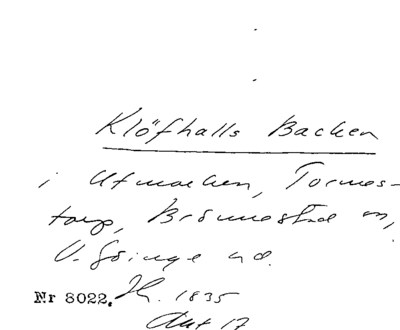 Klöfhalls Backen
i Utmarken, Tormes-
torp, Brönnestad sn,
V. Göinge hd.
Nr 8022. Jh. 1835
Akt 17